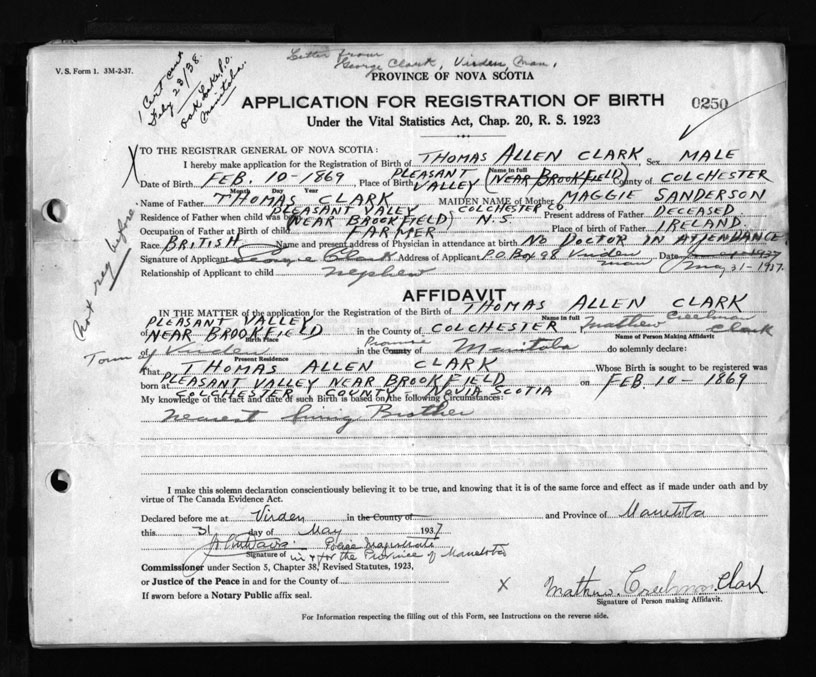 V. S. Form 1. 3M-2-37.
Letter from
George Clark, Virden, Man,
1 Cert sent
Feby 23/38.
Oak Lake P.O.
Manitoba.
PROVINCE OF NOVA SCOTIA
APPLICATION FOR REGISTRATION OF BIRTH
0250
Under the Vital Statistics Act, Chap. 20, R. S. 1923
TO THE REGISTRAR GENERAL OF NOVA SCOTIA:
I hereby make application for the Registration of Birth of THOMAS ALLEN CLARK Sex MALE
Name in full
Date of Birth FEB. 10-1869 Place of Birth PLEASANT VALLEY (NEAR BROOKFIELD) County of COLCHESTER
Month Day Year
Name of Father THOMAS CLARK MAIDEN NAME of Mother MAGGIE SANDERSON
Residence of Father when child was PLEASANT VALEY (NEAR BROOKFIELD) COLCHESTER CO N.S. Present address of Father DECEASED
Occupation of Father at Birth of child FARMER Place of birth of Father IRELAND
Race BRITISH Name and present address of Physician in attendance at birth NO DOCTOR IN ATTENDANCE
Signature of Applicant George Clark Address of Applicant P.O. Box 98 Virden Man Date May 31-1937.
Relationship of Applicant to child nephew
Not reg before
AFFIDAVIT
IN THE MATTER of the application for the Registration of the Birth of THOMAS ALLEN CLARK
Name in full
of PLEASANT VALLEY NEAR BROOKFIELD in the County of COLCHESTER Mathew Creelman Clark
Birth Place
Name of Person Making Affidavit
Town of Virden in the County of Province Manitoba do solemnly declare:
Present Residence
That THOMAS ALLEN CLARK Whose Birth is sought to be registered was
born at PLEASANT VALLEY NEAR BROOKFIELD COLCHESTER COUNTY NOVA SCOTIA on FEB 10-1869
My knowledge of the fact and date of such Birth is based on the following Circumstances:
Nearest living Brother
I make this solemn declaration conscientiously believing it to be true, and knowing that it is of the same force and effect as if made under oath and by
virtue of The Canada Evidence Act.
Declared before me at Virden in the County of and Province of Manitoba
this 31 day of May 1937
Police Magistrate
Signature of in & for the Province of Manitoba
Commissioner under Section 5, Chapter 38, Revised Statutes, 1923,
or Justice of the Peace in and for the County of
If sworn before a Notary Public affix seal.
X Mathew Creelman Clark
Signature of Person making Affidavit.
For Information respecting the filling out of this Form, see Instructions on the reverse side.